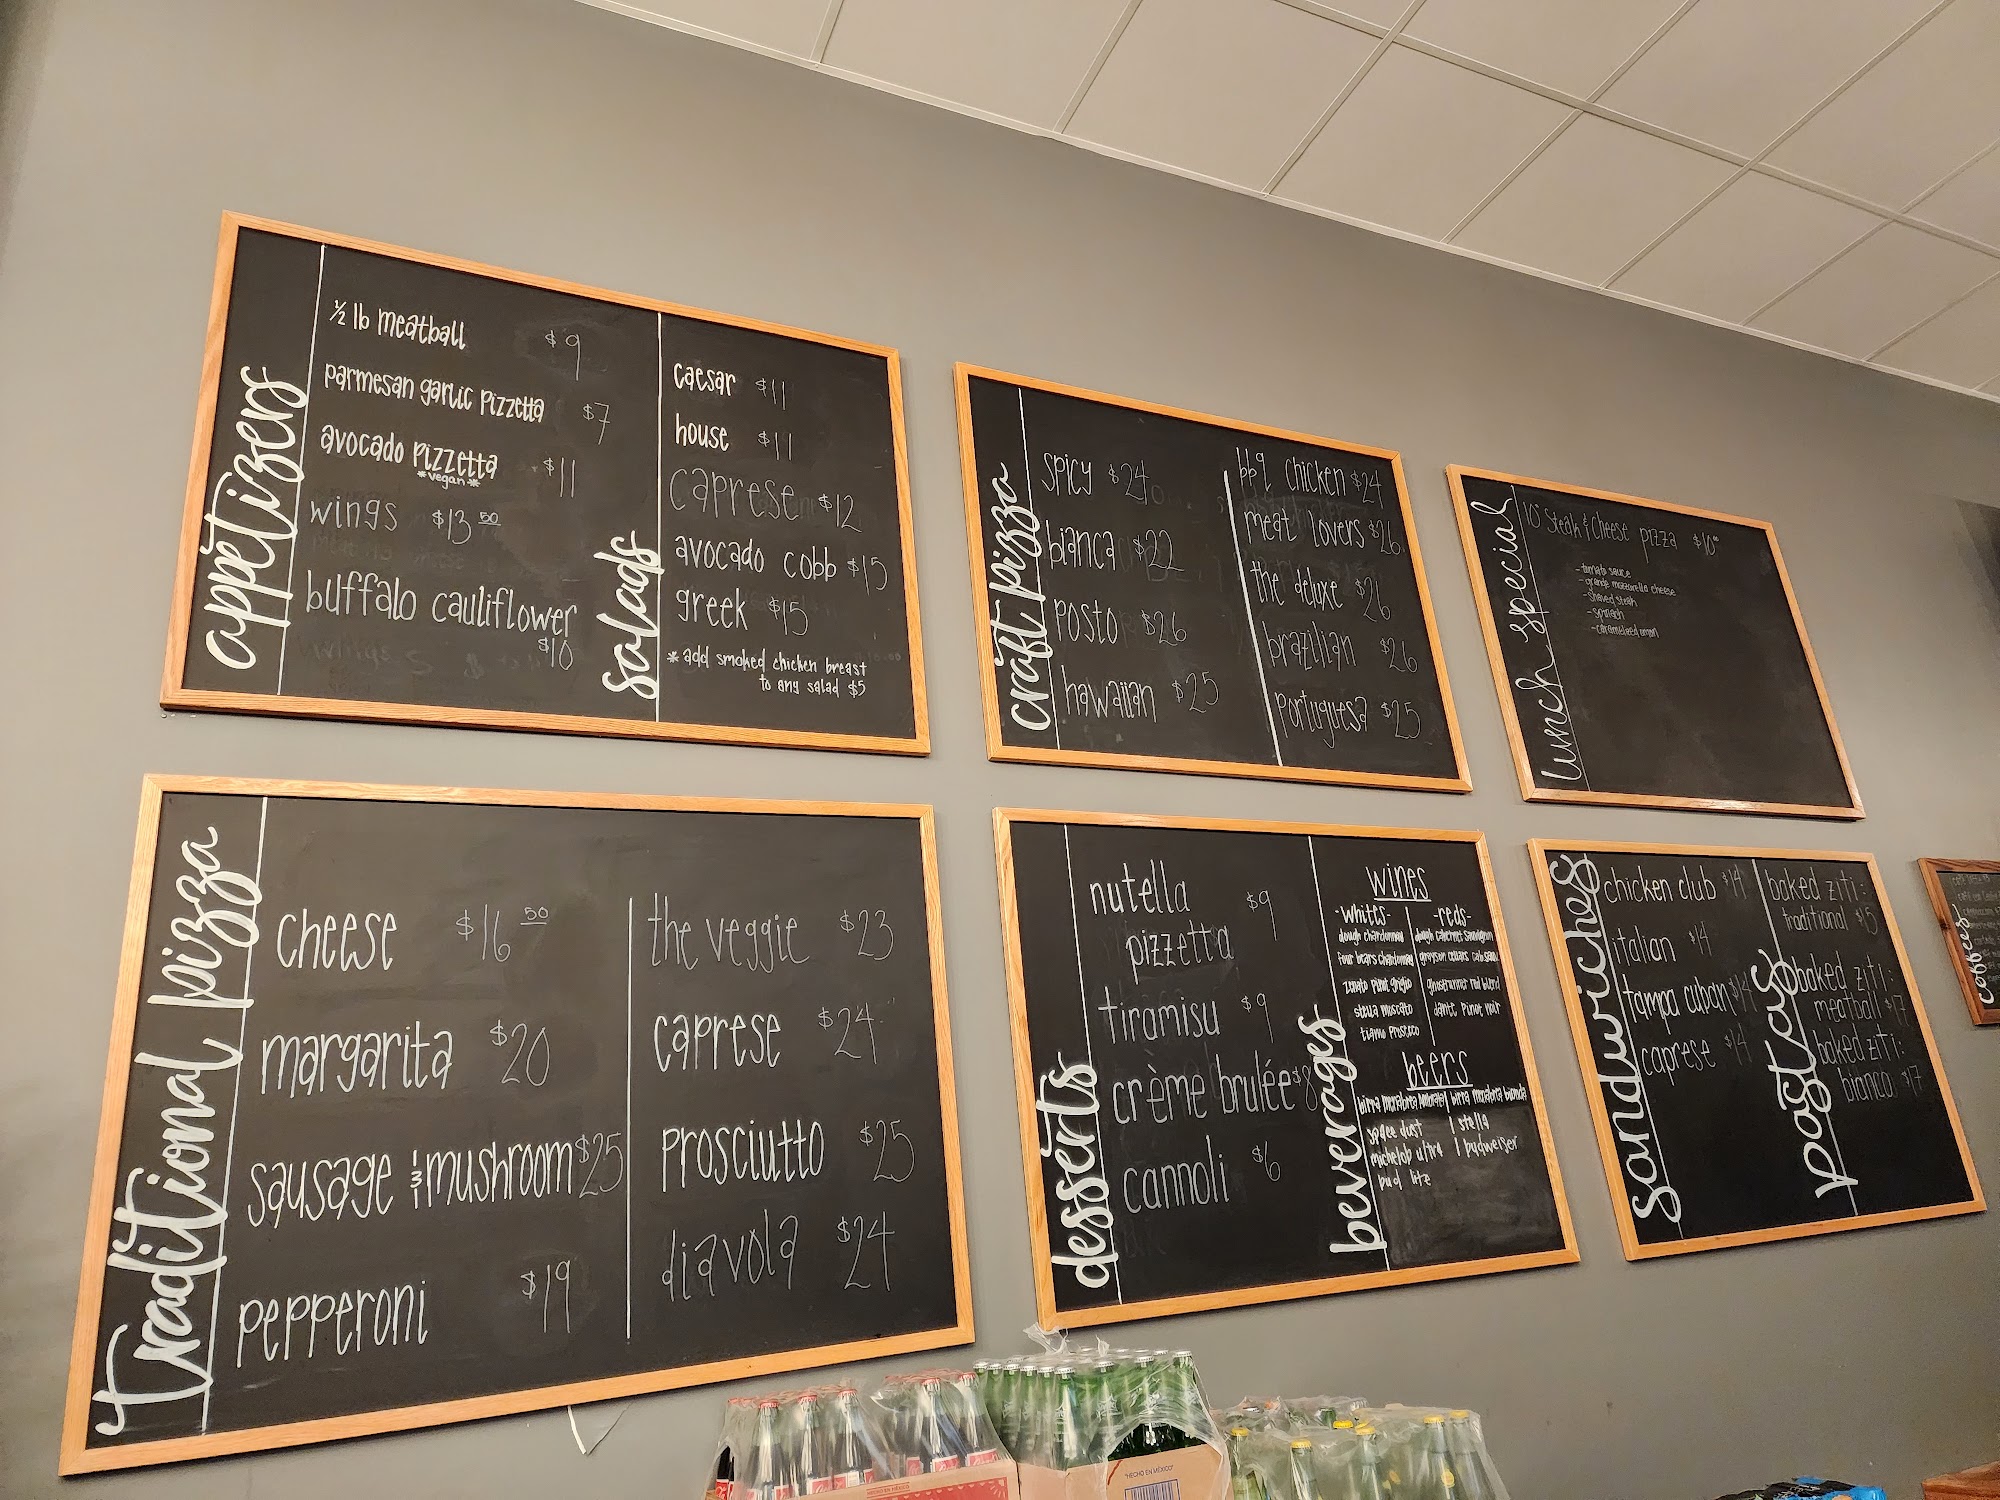 appetizers
½ lb meatball $9
parmesan garlic pizzetta $7
avocado pizzetta $11
*vegan*
wings $13 50
buffalo cauliflower
$10
salads
caesar $11
house $11
caprese $12
avocado cobb $15
greek $15
* add smoked chicken breast
to any salad $5
craft pizza
spicy $24
bianca $22
posto $26
hawaiian $25
bbq chicken $24
meat lovers $26
the deluxe $26
brazilian $26
portuguesa $25
lunch special
10" Steak & Cheese pizza $10
- tomato sauce
- grande mozzarella cheese
- shaved steak
- spinach
- caramelized onion
traditional pizza
cheese $16 50
margarita $20
sausage & mushroom $25
pepperoni $19
the veggie $23
caprese $24
prosciutto $25
diavola $24
desserts
nutella $9
pizzetta
tiramisu $9
crème brulée $8
cannoli $6
beverages
wines
-whites-
dough chardonnay
four bears chardonnay
zenato pinot grigio
stella muscato
tiamo prosecco
-reds-
dough cabernet sauvignon
grayson cellars cab sauv
ghostrunner red blend
dante pinot noir
beers
birra moretti birra bionda
space dust | stella
michelob ultra | budweiser
bud lite
sandwiches
chicken club $14
italian $14
tampa cuban $14
caprese $14
pastas
baked ziti:
traditional $15
baked ziti:
meatball $17
baked ziti:
bianco $17
coffees
"HECHO EN MÉXICO"
HECHO EN MÉXICO